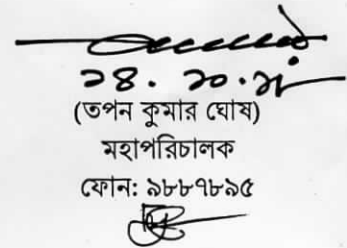 ১৪.১০.১৮
(তপন কুমার ঘোষ)
মহাপরিচালক
ফোন: ৯৮৮৭৮৯৫